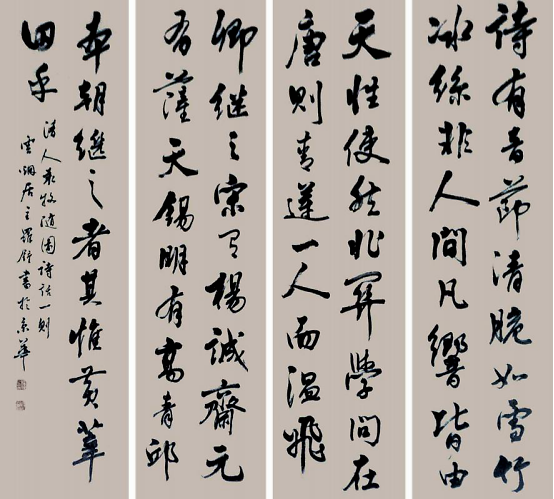 詩有音節清脆如雪竹
冰絲非人間凡響皆由
天性使然非關學問在
唐則青蓮一人而溫飛
卿繼之宋有楊誠齋元
有薩天錫明有高青邱
本朝繼之者其惟黃莘
田乎
清人袁枚隨園詩話一則
雲烟居主羅書於京華